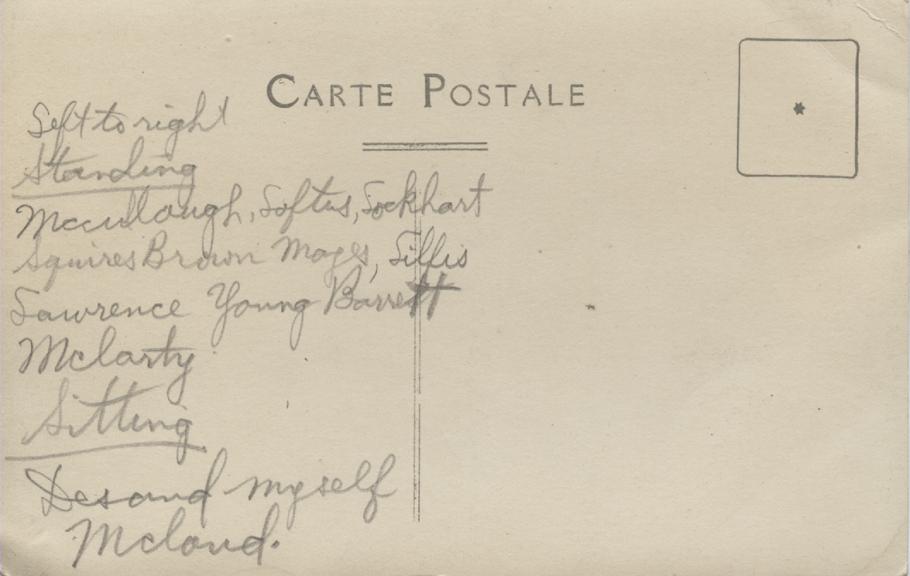 CARTE POSTALE
Left to right
Standing
Mccullough, Loftus, Lockhart
Squires Brown Moyes, Lillis
Lawrence Young Barrett
Mclarty
Sitting
Des and myself
Mcloud.